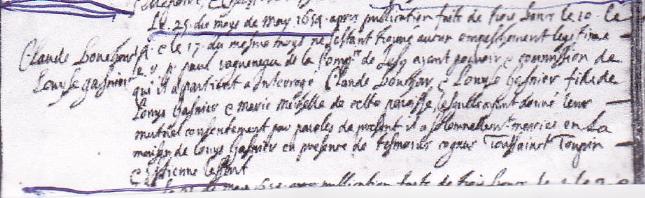 Le 25 du moys de may 1654 apres publication faite de trois bans le 10 le
Claude Bouchar
& le 17 du mesme moys ne s'estant trouvé aucun empeschement legitime
Louyse gasnier
le p. paul ragueneau de la Comp de Jesus ayant pouvoir & commission de
qui il apartient a Interrogé Claude Bouchar & Louyse Gasnier fille de
Louys Gasnier & Marie Michelle de cette paroisse lesquels ayant donné leur
mutuel consentement par paroles de present il a solonnellemt mariés en la
maison de Louys Gasnier en presence de tesmoins cognus Toussainct Toupin
& Estienne Lessart
de may apres publication faite de trois bans le